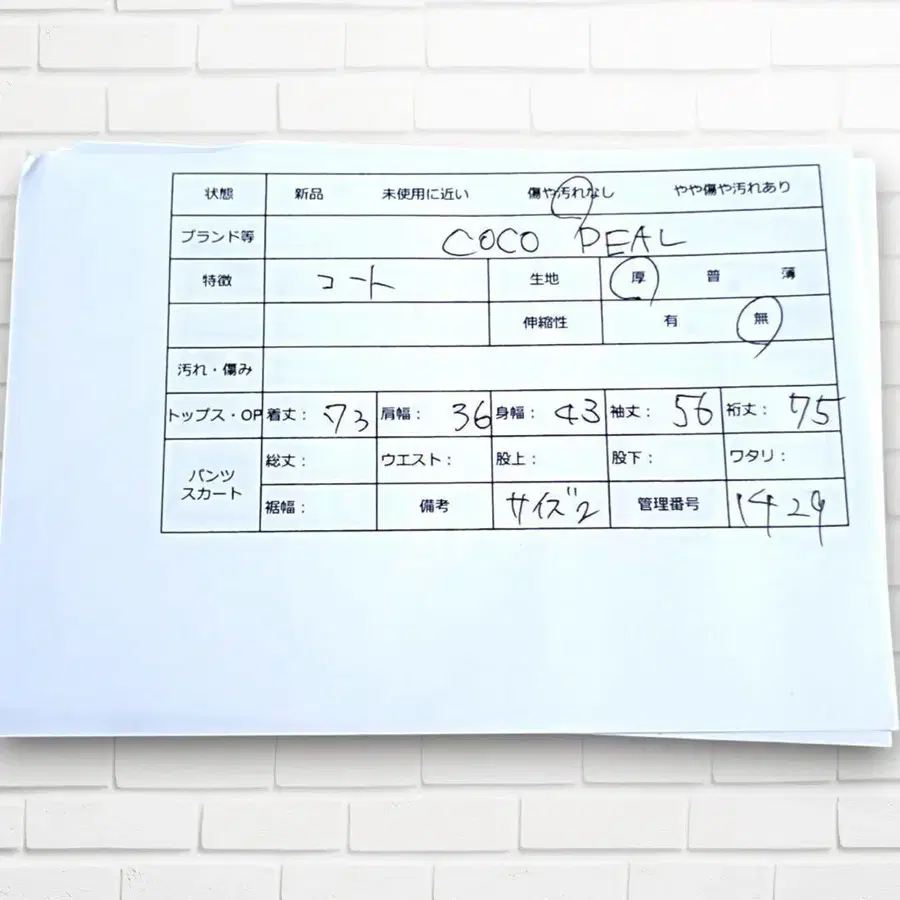 状態 新品 未使用に近い 傷や汚れなし やや傷や汚れあり
ブランド等 COCO DEAL
特徴 コート 生地 厚 普 薄
伸縮性 有 無
汚れ・傷み
トップス・OP 着丈: 73 肩幅: 36 身幅: 43 袖丈: 56 裄丈: 75
パンツ スカート 総丈: ウエスト: 股上: 股下: ワタリ:
裾幅: 備考 サイズ2 管理番号 1429